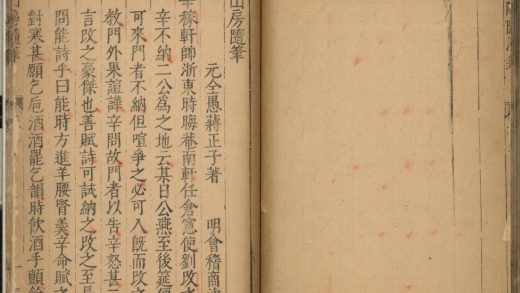 山房隨筆
元全愚蔣正子著 明會稽商
稼軒帥浙東時晦菴南軒任倉憲使劉改
辛不納二公爲之地云某日公燕至後筵便
可來門者不納但喧爭之必可入旣而改
教門外果諠譁辛問故門者以告辛怒甚
言改之豪傑也善賦詩可試納之改之至
問能詩乎曰能時方進羊腰腎羹辛命賦
對寒甚願乞巵酒酒罷乞韻時飲酒手顫